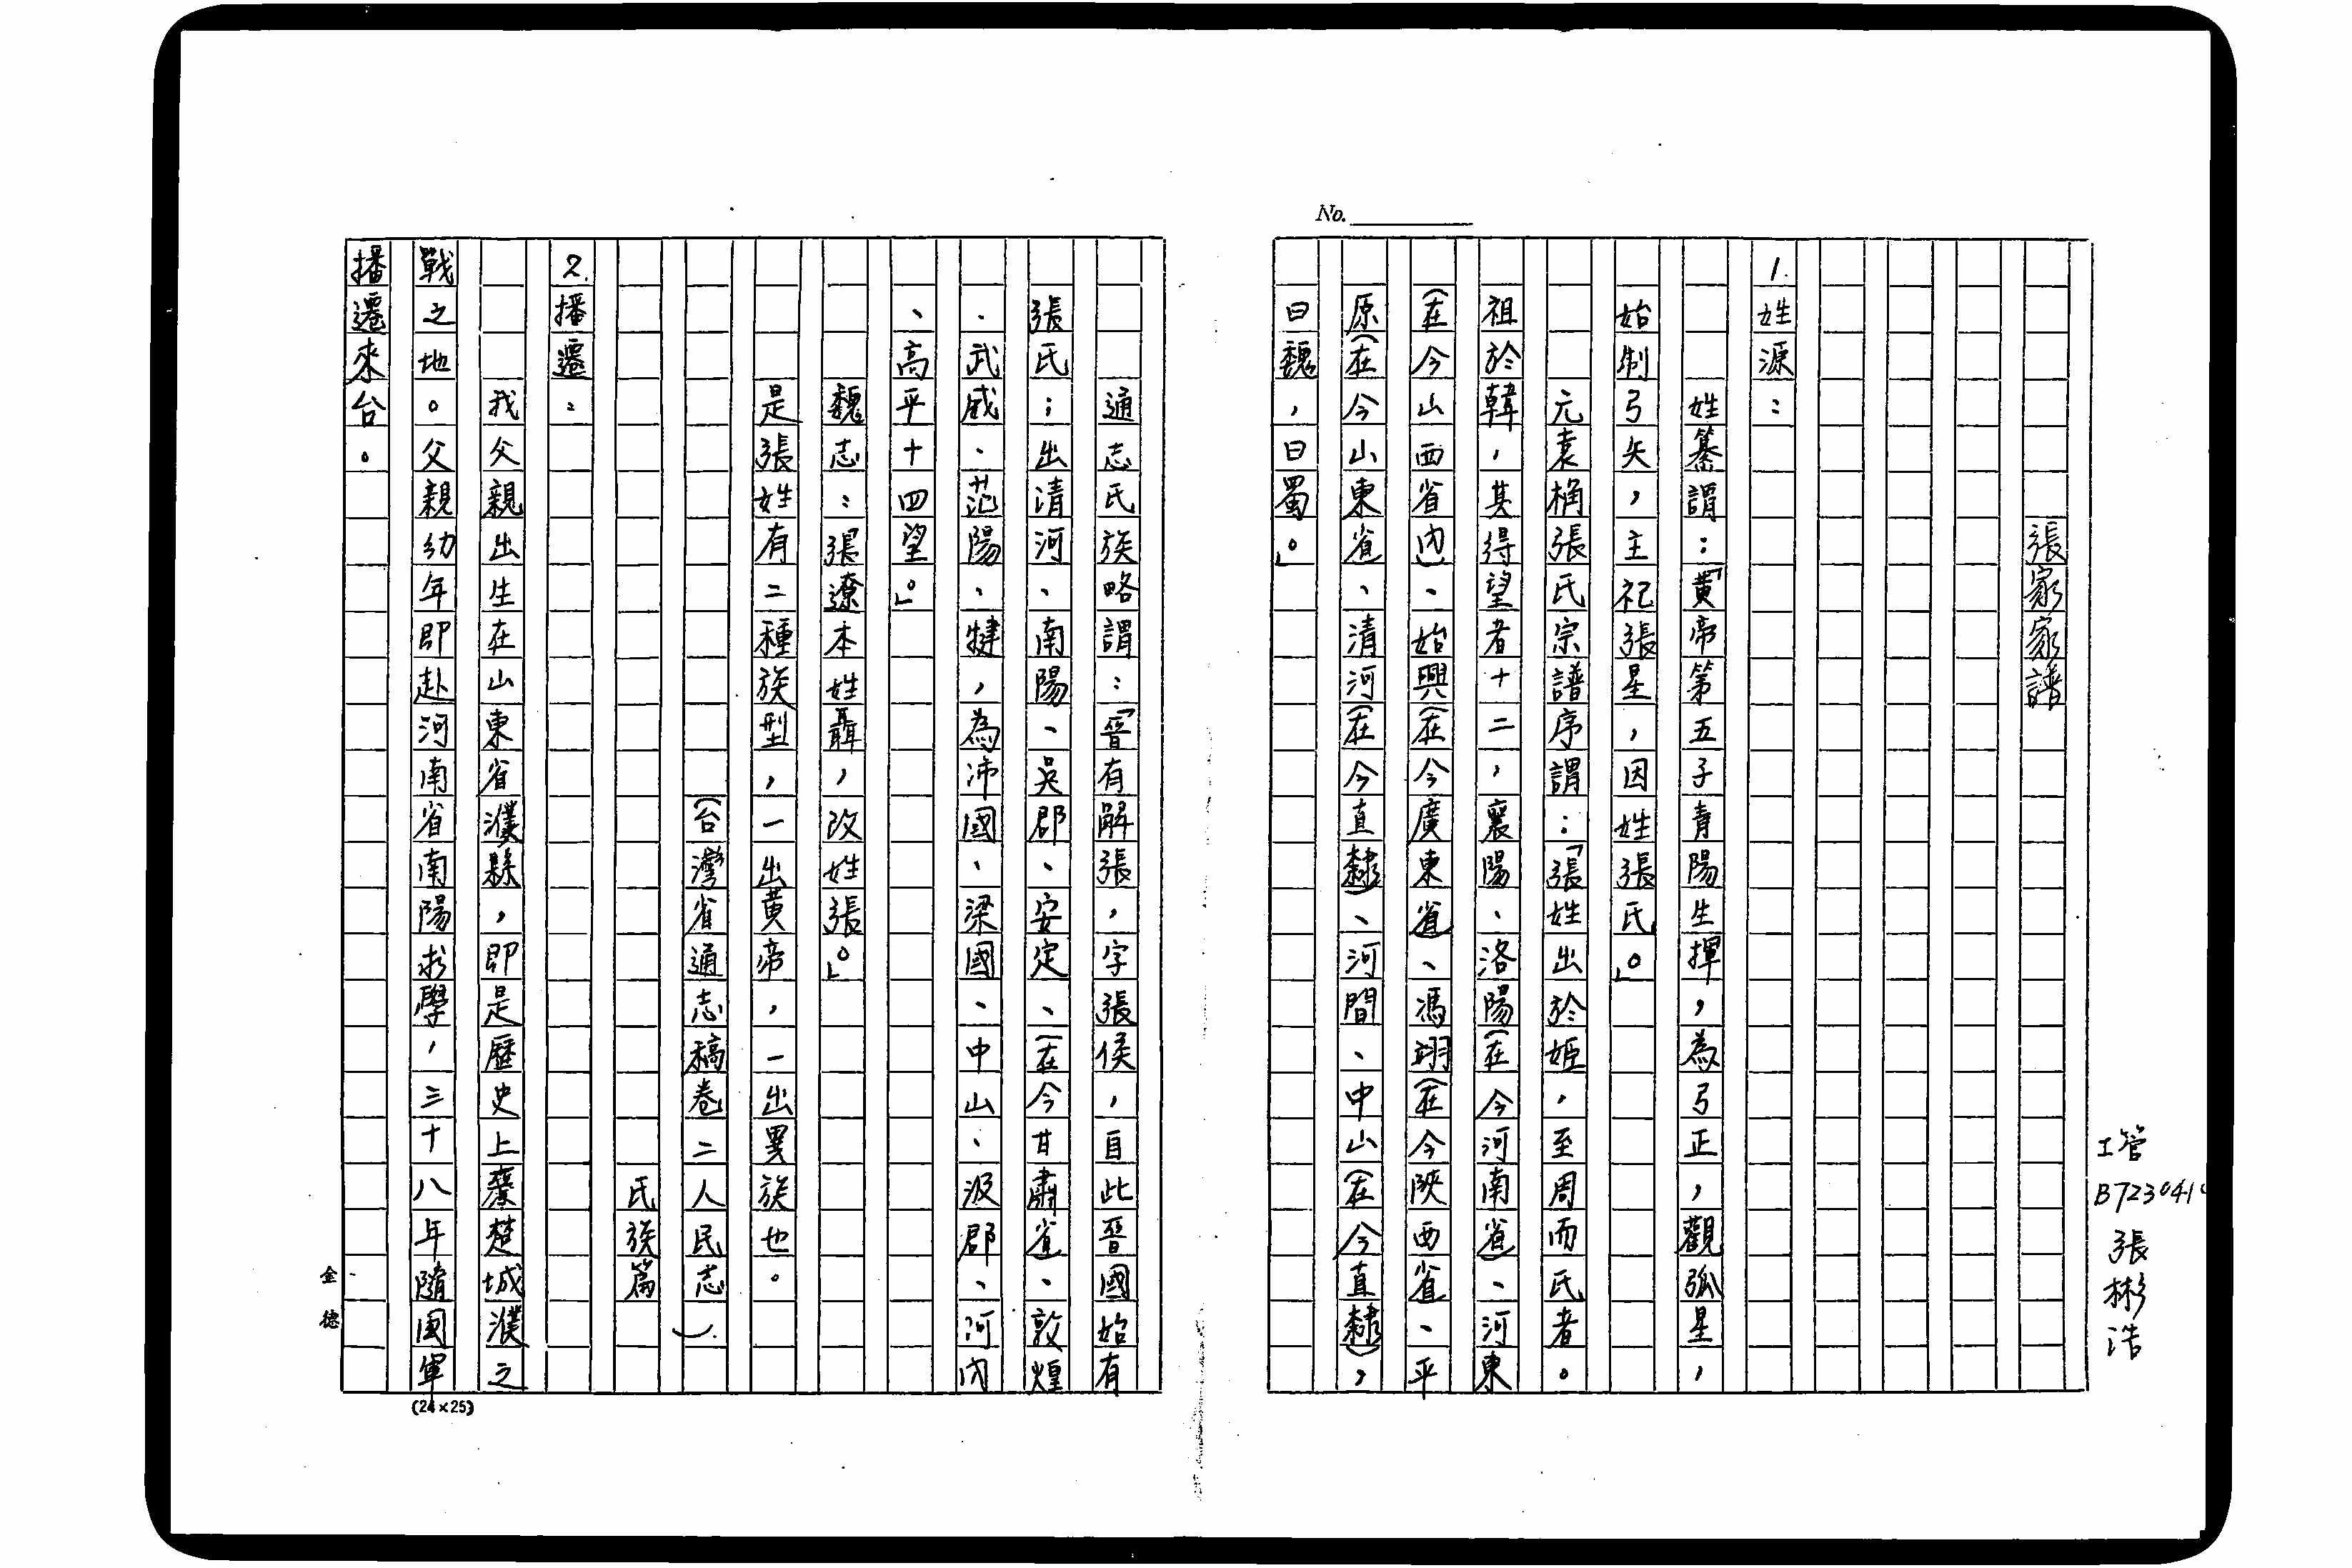 No.
張家家譜
工管
B723041
張彬浩
1.姓源：
姓纂謂：「黃帝第五子青陽生揮，為弓正，觀弧星，
始制弓矢，主祀張星，因姓張氏。」
元袁桷張氏宗譜序謂：「張姓出於姬，至周而氏者。
祖於韓，其得望者十二，襄陽、洛陽（在今河南省）、河東
（在今山西省內）、始興（在今廣東省）、馮翊（在今陝西省、平
原（在今山東省、清河（在今直隸）、河間、中山（在今直隸），
曰魏，曰蜀。」
通志氏族略謂：「晉有解張，字張侯，自此晉國始有
張氏；出清河、南陽、吳郡、安定、（在今甘肅省、敦煌
、武威、范陽、犍，為沛國、梁國、中山、汲郡、河內
、高平十四望。」
魏志：張遼本姓聶，改姓張。」
是張姓有二種族型，一出黃帝，一出異族也。
（台灣省通志稿卷二人民志
氏族篇）
2.播遷：
我父親出生在山東省濮縣，即是歷史上齊楚城濮之
戰之地。父親幼年即赴河南省南陽求學，三十八年隨国軍
播遷來台。
(24×25)
金德